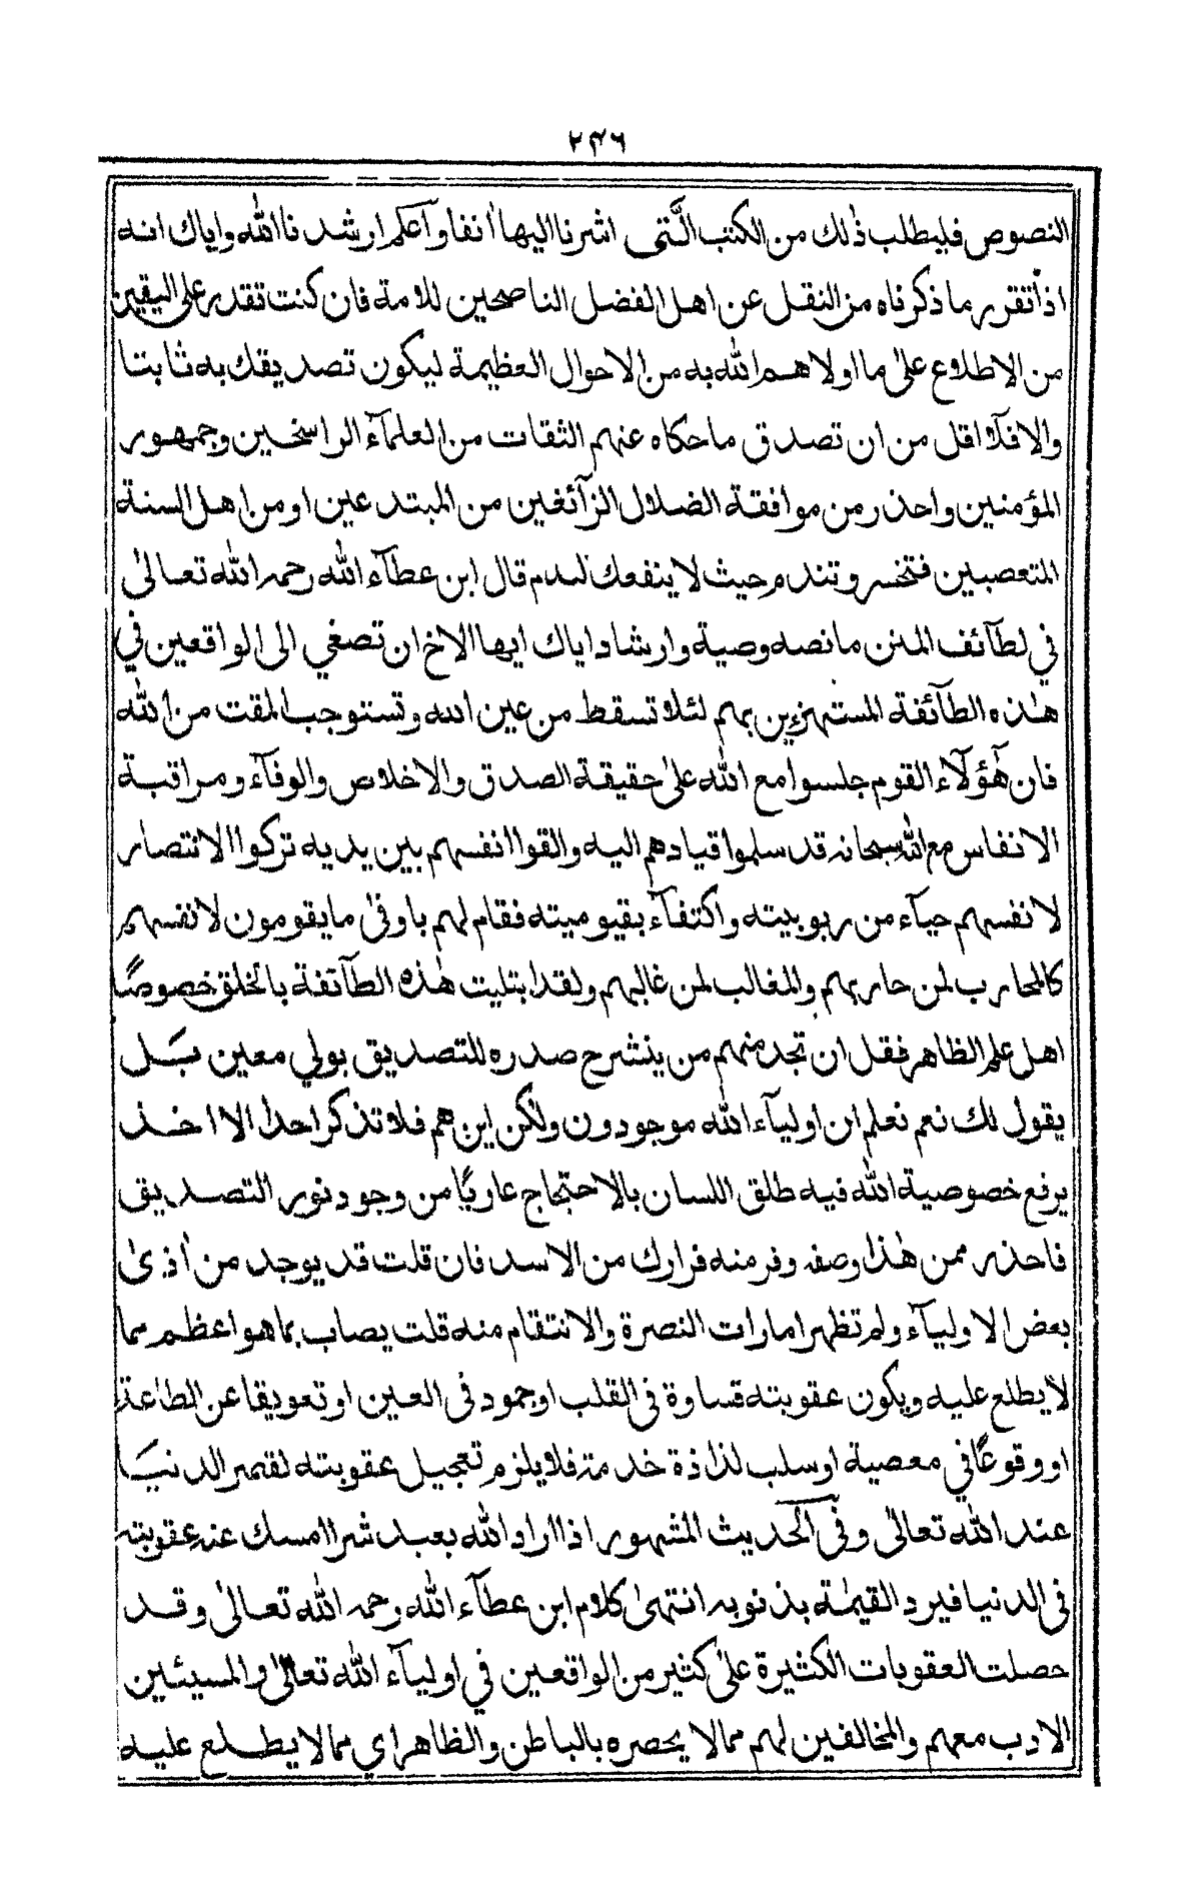 ٢٤٦
النصوص فليطلب ذٰلك من الكتب الّتى اشرنا اليها اٰنفا وآعلم ارشدنا الله واياك انه
اذا تقرر ما ذكرناه من النقل عن اهل الفضل الناصحين للامة فان كنت تقدر على اليقين
من الاطلاع علىٰ ما اولاهم الله به من الاحوال العظيمة ليكون تصديقك به ثابتا
والا فلا اقل من ان تصدق ما حكاه عنهم الثقات من العلمآء الراسخين وجمهور
المؤمنين واحذر من موافقة الضلال الزآئغين من المبتدعين او من اهل السنة
المتعصبين فتخسر وتندم حيث لا ينفعك الندم قال ابن عطآء الله رحمه الله تعالىٰ
في لطآئف المنن ما نصه وصية وارشاد اياك ايها الاخ ان تصغي الى الواقعين في
هٰذه الطآئفة المستهزءين بهم لئلا تسقط من عين الله وتستوجب المقت من الله
فان هٓؤلآء القوم جلسوا مع الله علىٰ حقيقة الصدق والاخلاص والوفآء ومراقبة
الانفاس مع الله سبحانه قد سلموا قيادهم اليه والقوا انفسهم بين يديه تركوا الانتصار
لانفسهم حيآء من ربوبيته واكتفآء بقيوميته فقام لهم باوفىٰ ما يقومون لانفسهم
كالمحارب لمن حاربهم والمغالب لمن غالبهم ولقد ابتليت هٰذه الطآئفة بالخلق خصوصًا
اهل علم الظاهر فقل ان تجد منهم من ينشرح صدره للتصديق بولي معين بَل
يقول لك نعم نعلم ان اوليآء الله موجودون ولٰكن اين هم فلا تذكر احدا الا اخذ
يرفع خصوصية الله فيه طلق اللسان بالاحتجاج عاريًا من وجود نور التصديق
فاحذر ممن هٰذا وصفه وفر منه فرارك من الاسد فان قلت قد يوجد من اٰذىٰ
بعض الاوليآء ولم تظهر امارات النصرة والانتقام منه قلت يصاب بما هو اعظم مما
لا يطلع عليه ويكون عقوبته قساوة فى القلب او جمود فى العين او تعويقا عن الطاعة
او وقوعًا في معصية او سلب لذاذة خدمة فلا يلزم تعجيل عقوبته لقصر الدنيَا
عند الله تعالىٰ وفى الحديث المشهور اذا اراد الله بعبد شرا امسك عنه عقوبته
فى الدنيا فيرد القيٰمة بذنوبه انتهىٰ كلام ابن عطآء الله رحمه الله تعالىٰ وقد
حصلت العقوبات الكثيرة علىٰ كثير من الواقعين في اوليآء الله تعالىٰ والمسيئين
الادب معهم والمخالفين لهم مما لا يحصره بالباطن والظاهر اي مما لا يطلع عليه